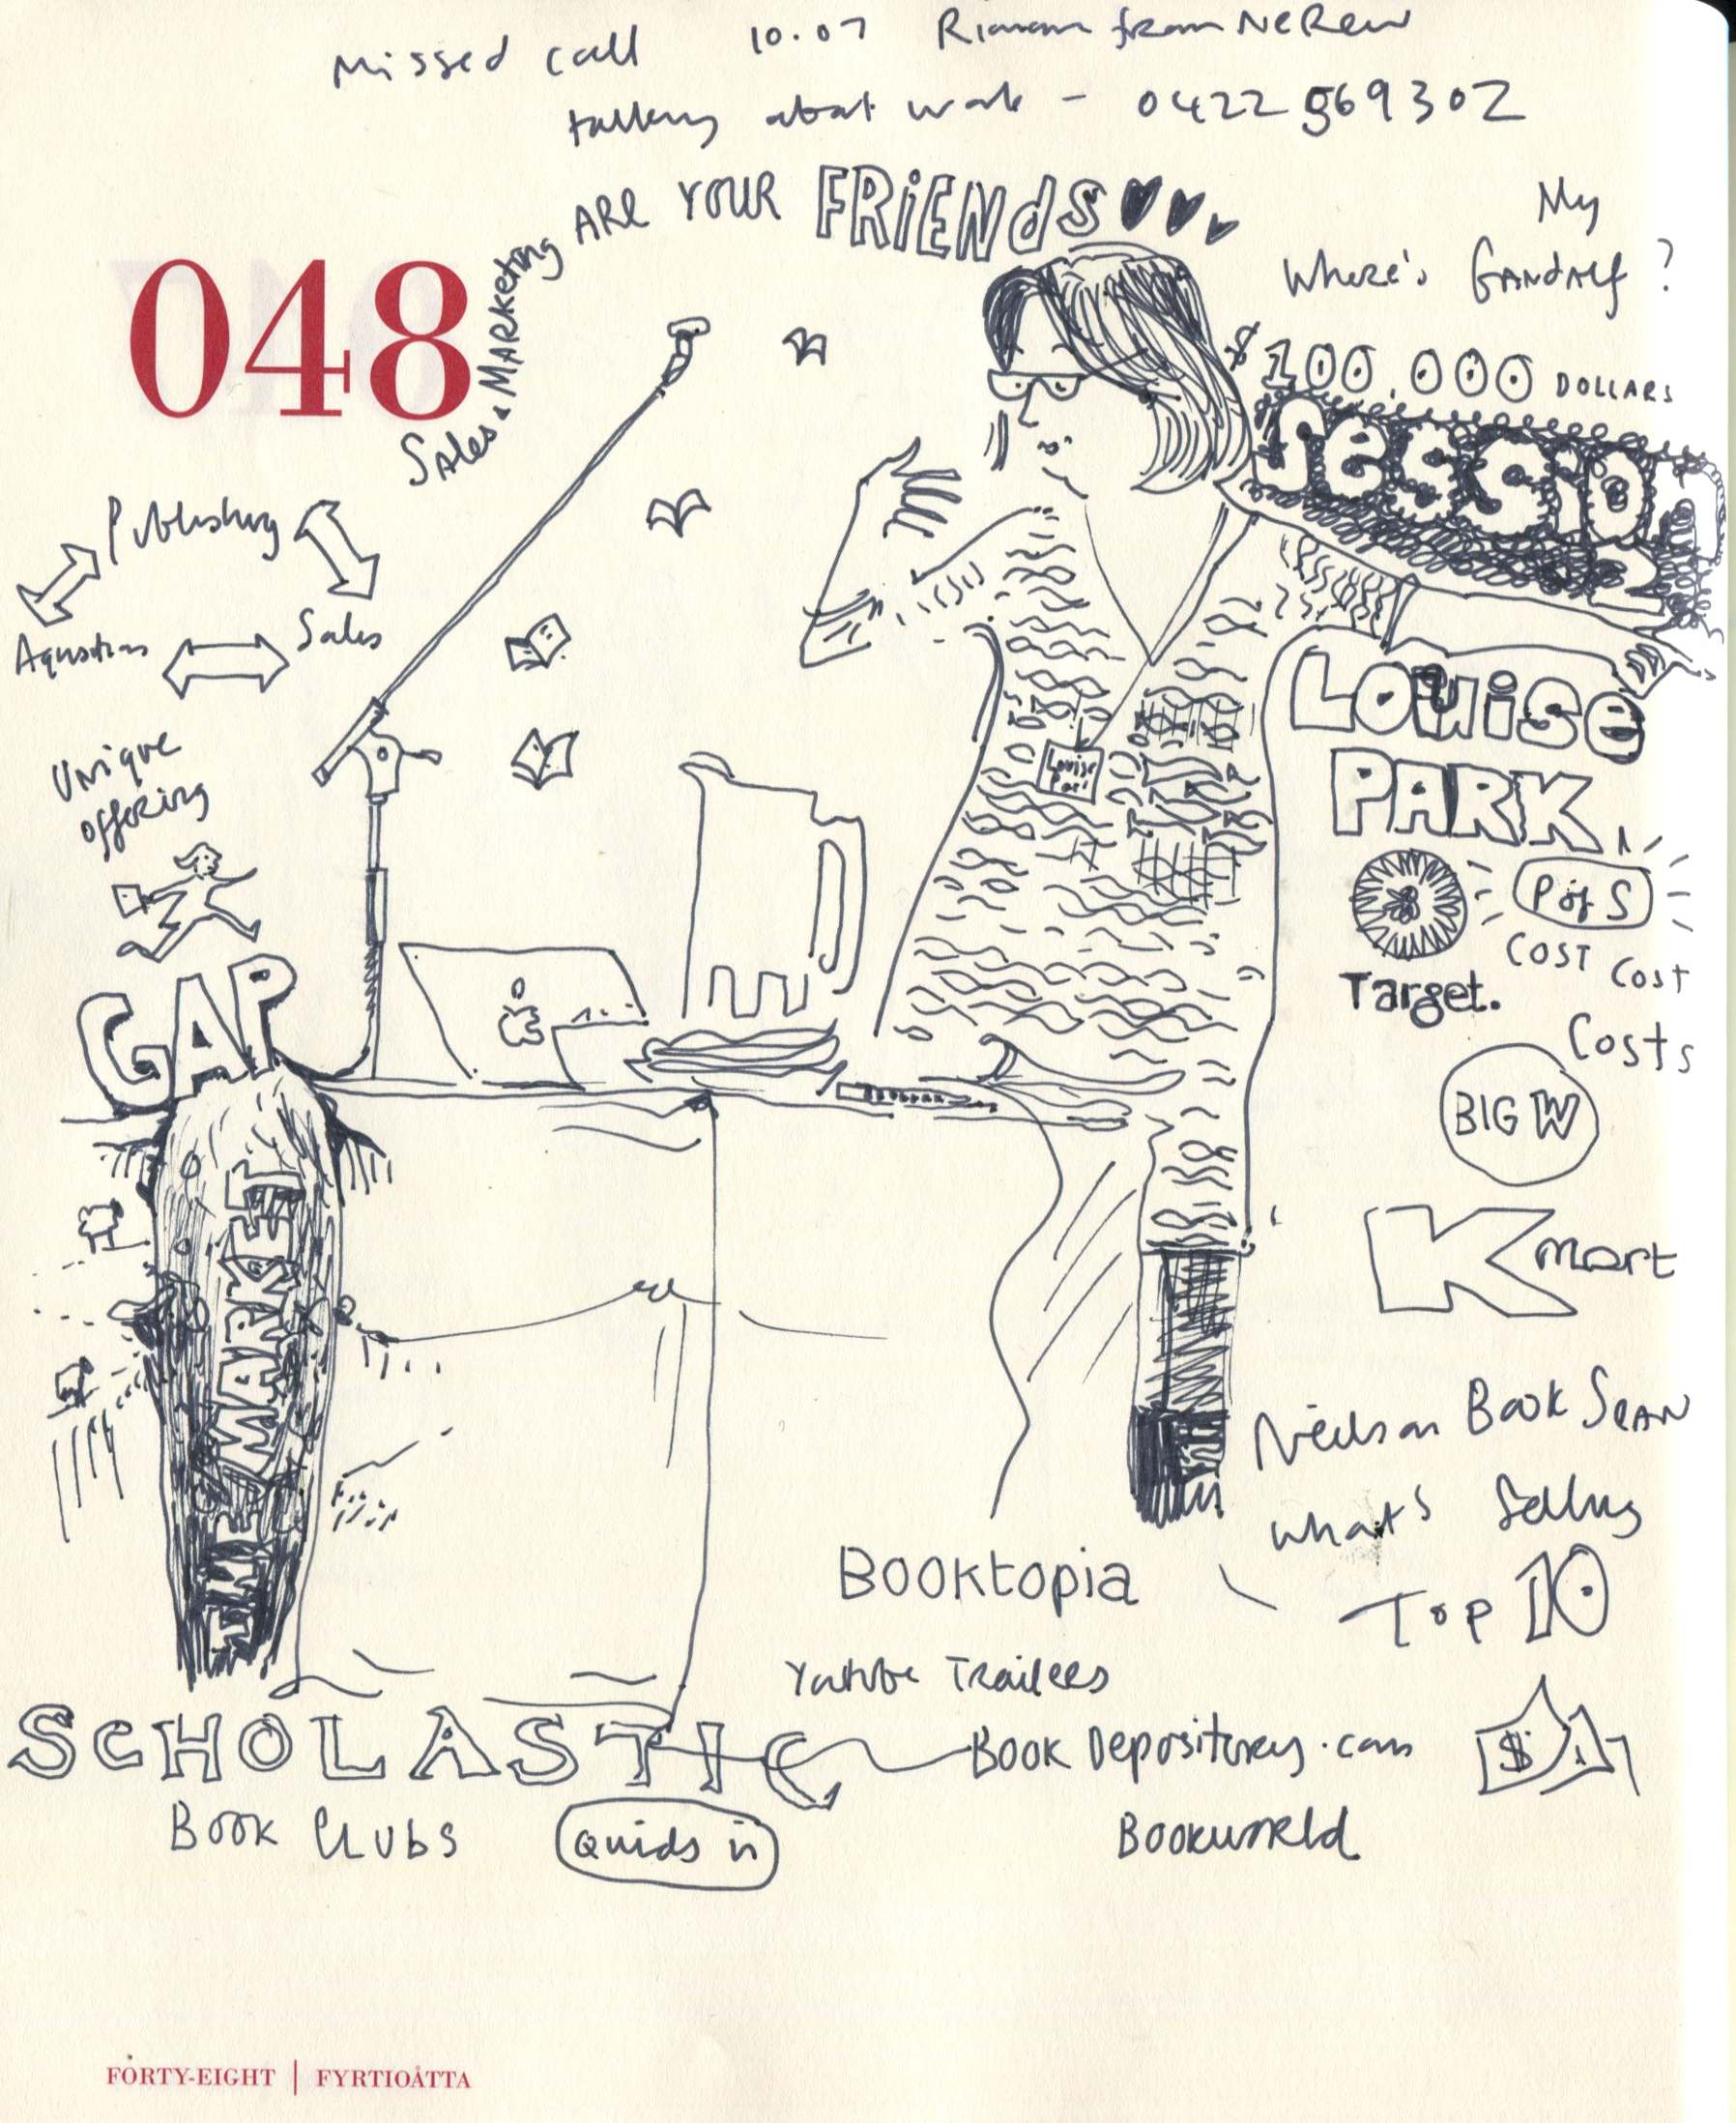 Missed call 10.07 from NeRew
talking about work - 0422 569302
Sales & Marketing ARE YOUR FRIENDS
My
Where's GANdAlf?
048
$100,000 DOLLARS
Session 2
Publishing
Sales
LOUiSe
PARK
Louise
Park
Unique
offering
P of S
COST COST
Costs
Target.
GAP
BIG W
IN THE MARKET
Kmart
Neilson Book SCAN
what's Selling
Top 10
Booktopia
Youtube Trailers
SCHOLASTIC
Book Depository.com
$
Book Clubs
Quids in
Bookworld
FORTY-EIGHT | FYRTIOÅTTA